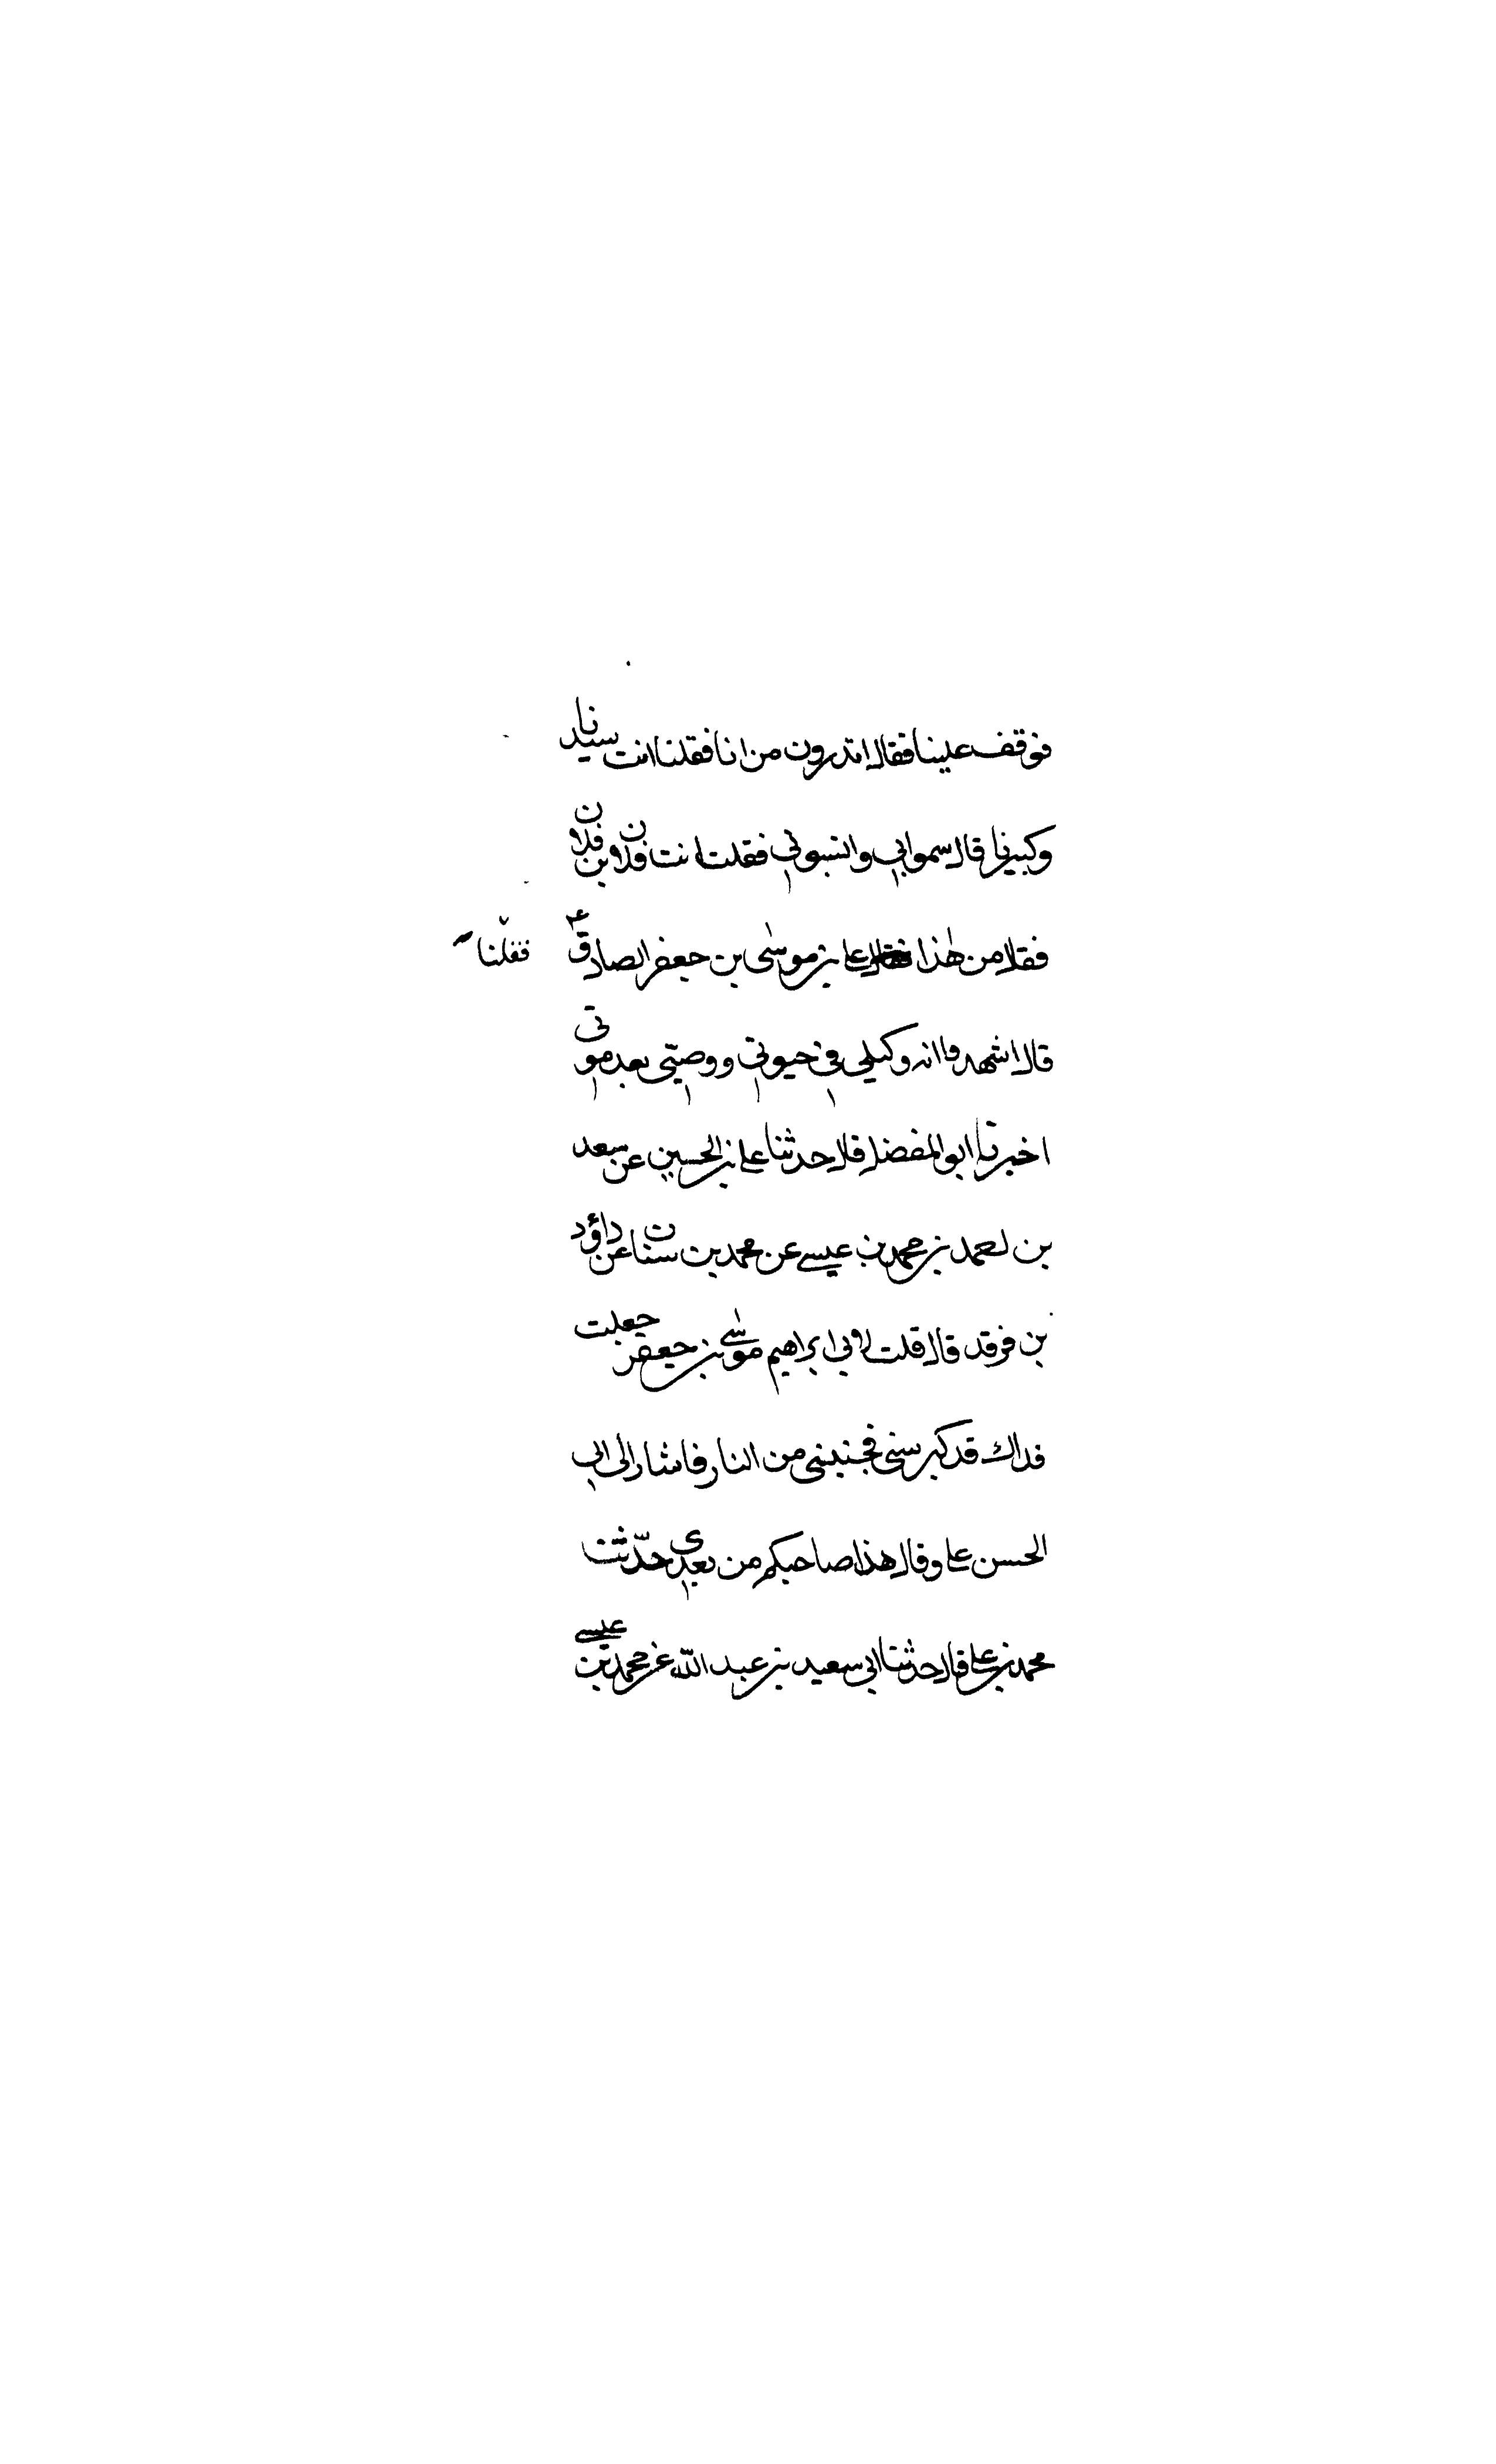 فوقف علينا فقال اتدرون من انا فقلنا انت سيدنا
وكبيرنا قال سموابي وانسبوني فقلت انت فلان بن فلان
فقال من هذا علي بن موسى بن جعفر الصادق ع
فقلنا
قال اشهدوا انه وكيلي في حيوتي ووصيتي بعد موتي
اخبرنا ابو المفضل قال حدثنا علي بن الحسين عن سعد
بن احمد بن محمد بن عيسى عن محمد بن سنان عن داؤد
بن فرقد قال قلت لابي ابراهيم موسى بن جعفر جعلت
فداك قد كبر سني فجنبني من النار فاشار الى ابي
الحسن علي وقال هذا صاحبكم من بعدي حدثنا
محمد بن علي قال حدثنا ابي سعيد بن عبد الله عن محمد بن عيسى